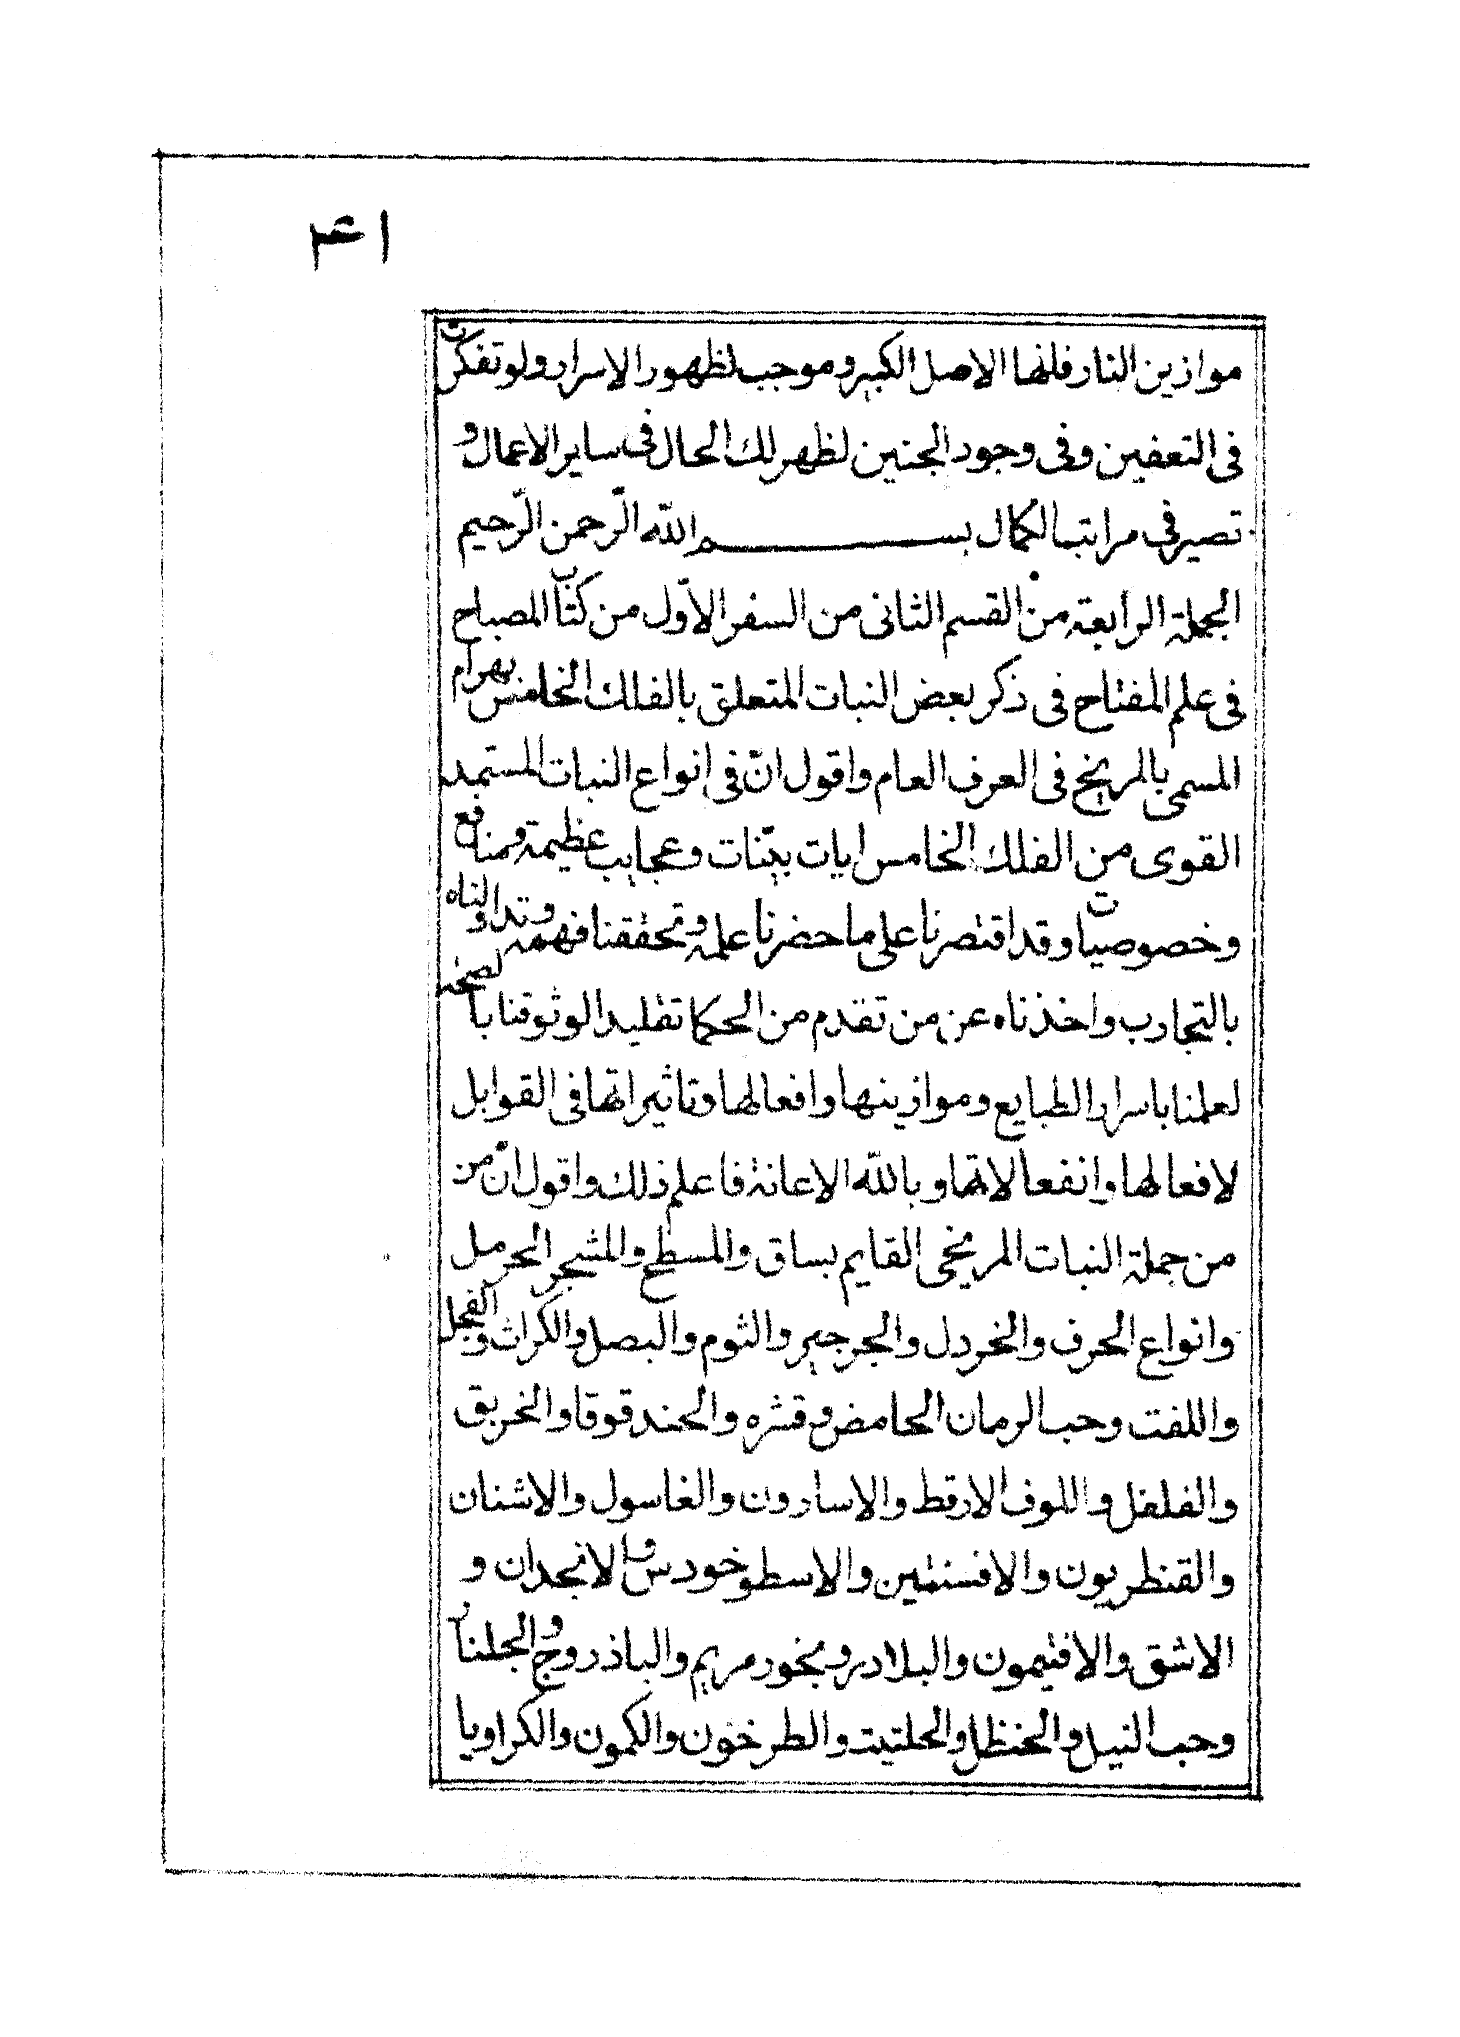 موازين النار فانها الاصل الكبير وموجب لظهور الاسرار ولو تفكرت
فى التعفين وفى وجود الجنين لظهر لك الحال فى ساير الاعمال و
تصير فى مراتب الكمال بسم الله الرّحمن الرّحيم
الجملة الرابعة من القسم الثانى من السفر الاوّل من كتاب المصباح
فى علم المفتاح فى ذكر بعض النبات المتعلق بالفلك الخامس بهرام
المسمى بالمريخ فى العرف العام واقول انّ فى انواع النبات المستمد
القوى من الفلك الخامس ايات بيّنات وعجايب عظيمة ومنافع
وخصوصيات وقد اقتصرنا على ما حضرنا علمه وتحققنا فهمه وتداولناه
بالتجارب واخذناه عن من تقدم من الحكما تقليدا لوثوقنا با لصحة
لعلمنا باسرار الطبايع وموازينها وافعالها وتاثيراتها فى القوابل
لافعالها وانفعالاتها وبالله الاعانة فاعلم ذلك واقول انّ من
من جملة النبات المريخى القايم بساق والمسطح والمشجر الحرمل
وانواع الحرف والخردل والجرجير والثوم والبصل والكراث والفجل
واللفت وحب الرمان الحامض وقشره والحندقوقا والخربق
والفلفل واللوف الارقط والاسارون والغاسول والاشنان
والقنطريون والافسنتين والاسطوخودس والانجدان و
الاشق والافتيمون والبلادر وبخور مريم والباذروج والجلنار
وحب النيل والحنظل والحلتيت والطرخون والكمون والكراويا